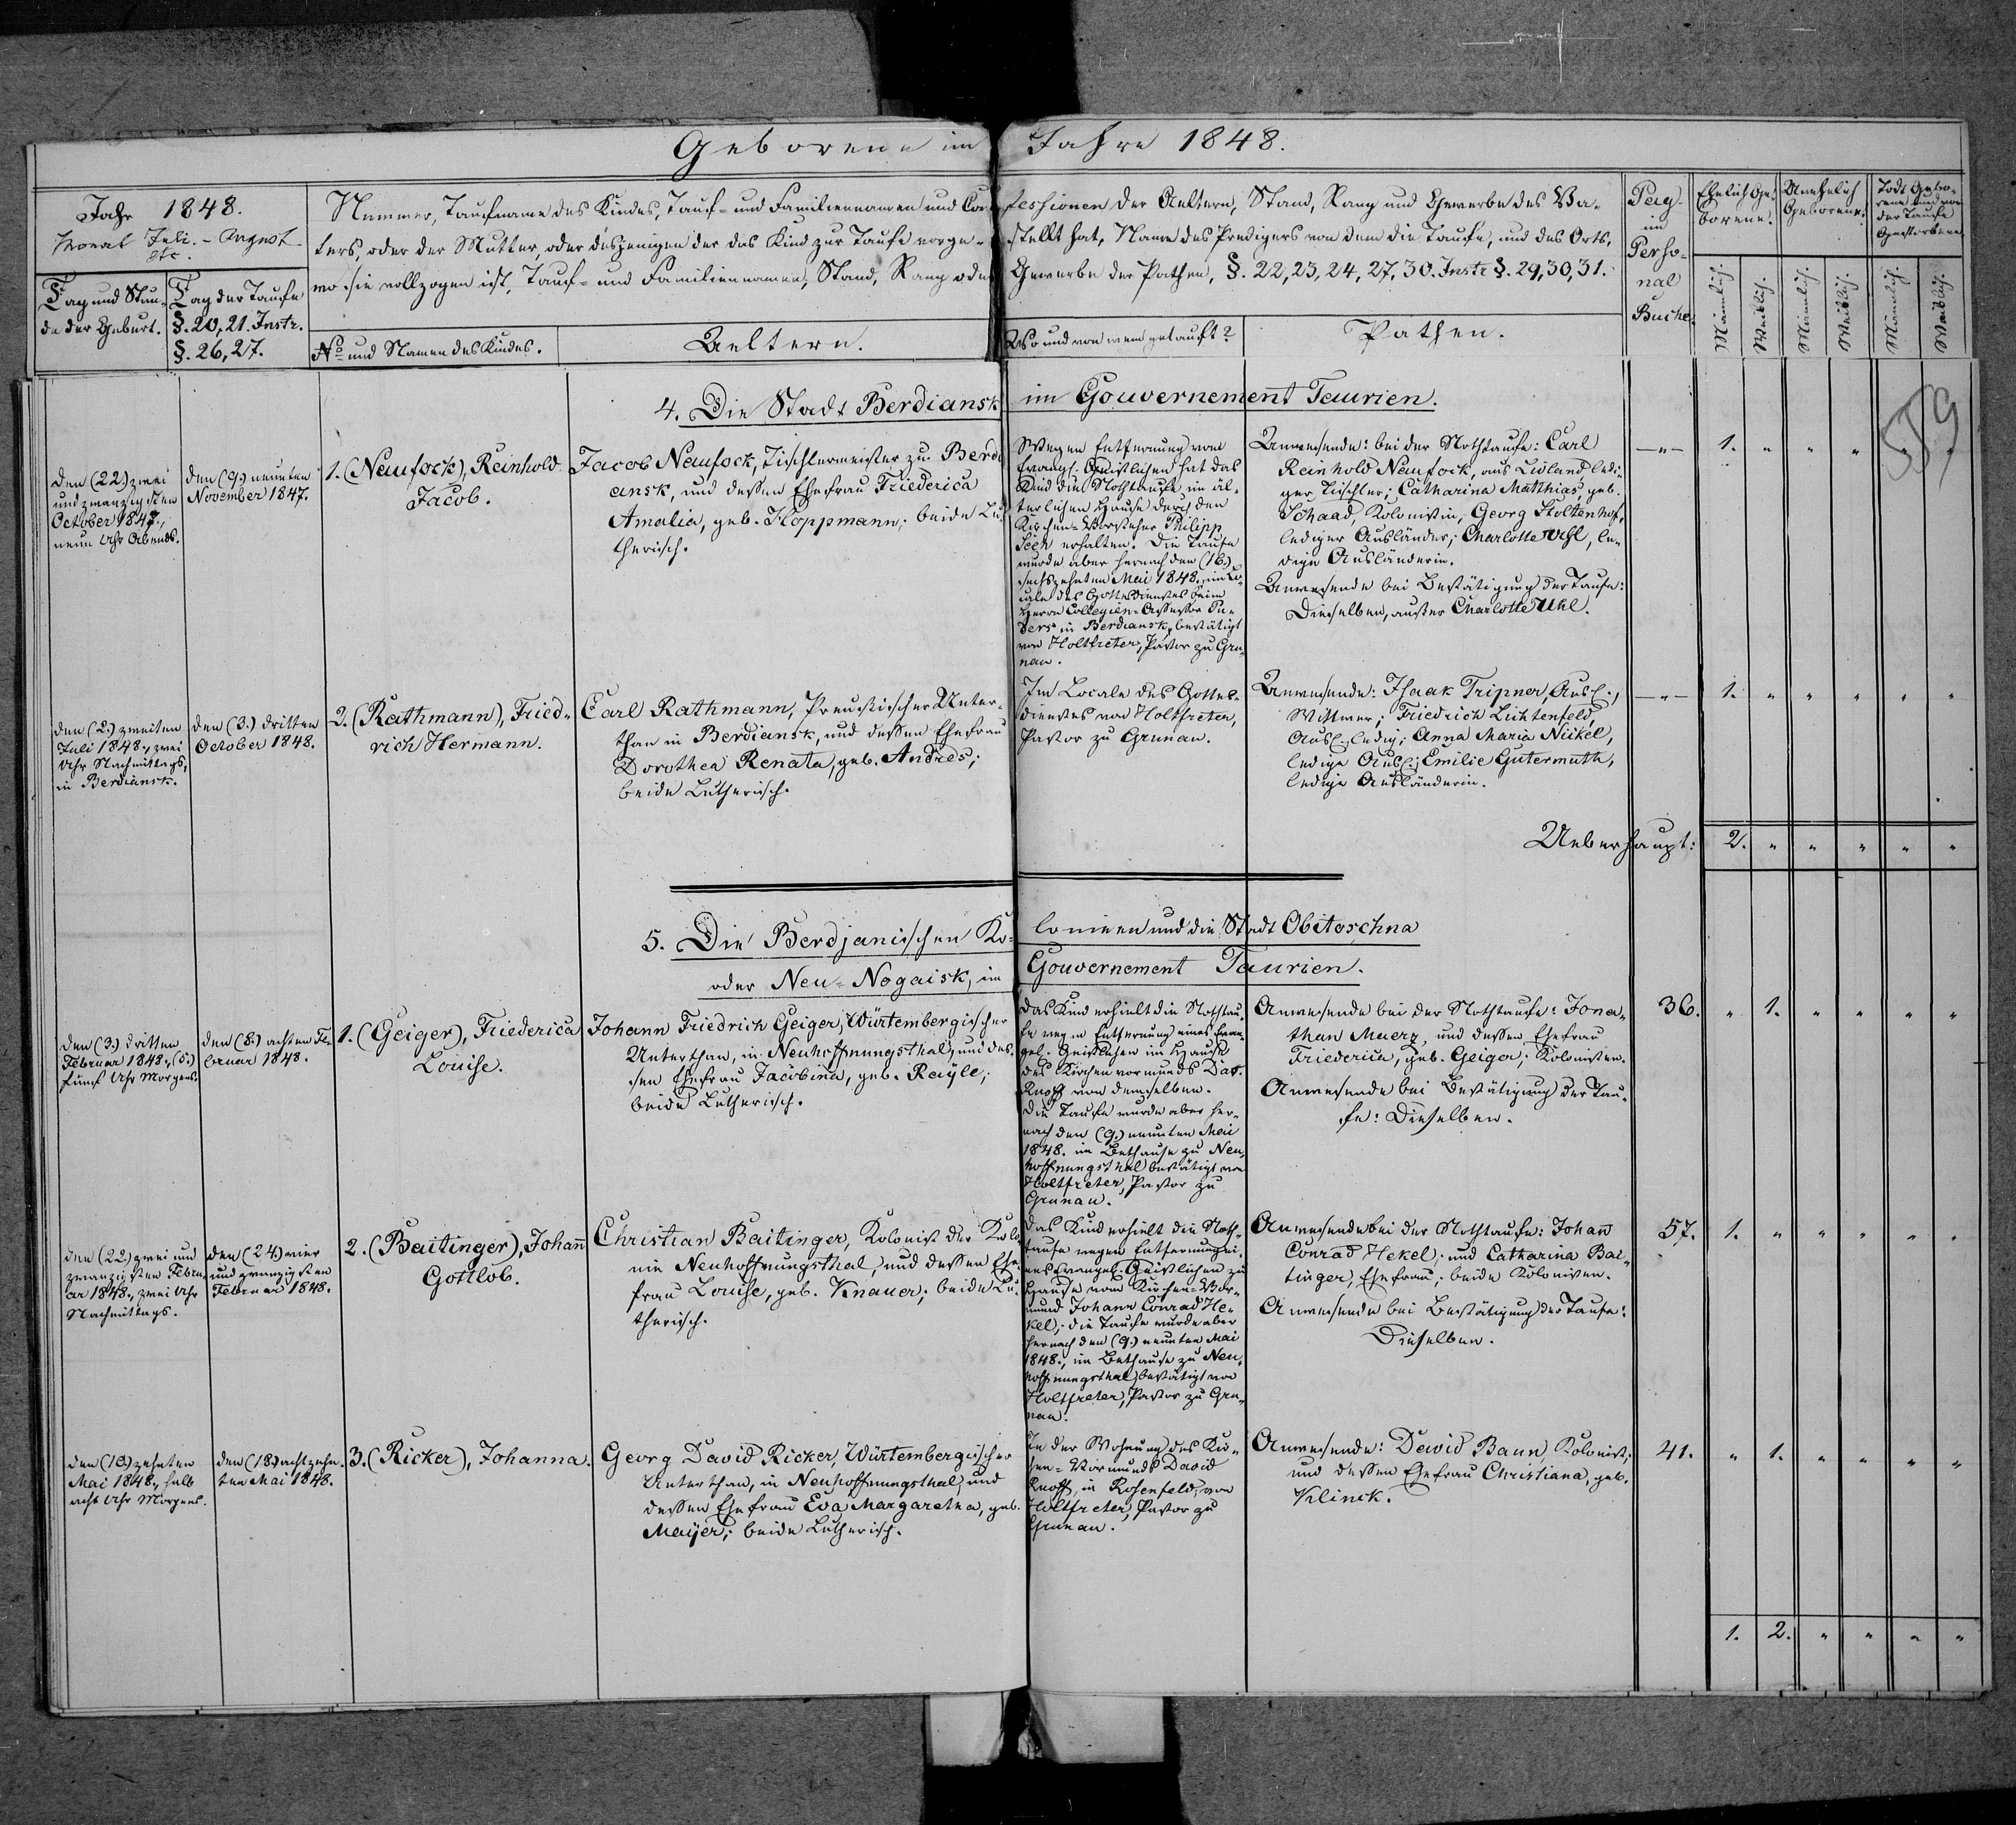 Geborene im Jahre 1848.
Jahr 1848.
Monat Juli. - August
etc.
Tag und Stun-
de der Geburt.
Tag der Taufe
§. 20, 21. Instr.
§. 26, 27.
Nummer, Taufname des Kindes, Tauf- und Familiennamen und Confessionen der Aeltern, Stand, Rang und Gewerbe des Va-
ters, oder der Mutter, oder desjenigen der das Kind zur Taufe vorge-stellt hat, Name des Predigers von dem die Taufe, und des Orts,
wo sie vollzogen ist, Tauf- und Familiennamen, Stand, Rang oder Gewerbe der Pathen, §. 22, 23, 24, 27, 30. Instr. §. 29, 30, 31.
No und Namen des Kindes.
Aeltern.
Wo und von wem getauft?
Pathen.
Pag.
im
Perso-
nal
Buche.
Ehelich Ge-
borene.
Unehelich
Geborene.
Todt Gebo-
rene und vor
der Taufe
Gestorbene.
Männlich.
Weiblich.
Männlich.
Weiblich.
Männlich.
Weiblich.
59
4. Die Stadt Berdiansk im Gouvernement Taurien.
den (22.) zwei
und zwanzigsten
October 1847.,
neun Uhr Abends.
den (9.) neunten
November 1847.
1. (Neufock), Reinhold
Jacob.
Jacob Neufock, Tischlermeister zu Berdi-
ansk, und dessen Ehefrau Friederica
Amalia, geb. Hoppmann; beide Lu-
therisch.
Wegen Entfernung vom
Evangl. Geistlichen hat das
Kind die Nothtaufe im äl-
terlichen Hause durch den
Kirchen-Vorsteher Philipp
Seeh erhalten. Die Taufe
wurde aber hernach den (16.)
sechszehnten Mai 1848., im Lo-
cale des Gottesdienstes beim
Herrn Collegien-Assessor Pe-
ters in Berdiansk, bestätigt
von Holtfreter, Pastor zu Gru-
nau.
Anwesende: bei der Nothtaufe: Carl
Reinhold Neufock, aus Livland ledi-
ger Tischler; Catharina Matthias, geb.
Schaad, Kolonistin; Georg Stoltenhof,
lediger Ausländer; Charlotte Uhl, le-
dige Ausländerin.
Anwesende bei Bestätigung der Taufe:
Dieselben, außer Charlotte Uhl.
-"- 1. " " " " "
den (2.) zweiten
Juli 1848., zwei
Uhr Nachmittags,
in Berdiansk.
den (3.) dritten
October 1848.
2. (Rathmann), Fried-
rich Hermann.
Carl Rathmann, Preußischer Unter-
than in Berdiansk, und dessen Ehefrau
Dorothea Renata, geb. Andres;
beide Lutherisch.
Im Locale des Gottes-
dienstes von Holtfreter,
Pastor zu Grunau.
Anwesende: Isaak Tripner, Ausl.,
Wittwer; Friedrich Lichtenfeld,
Ausl., ledig; Anna Maria Nickel,
ledige Ausl.; Emilie Gutermuth,
ledige Ausländerin.
-"- 1. " " " " "
Ueberhaupt: 2. " " " " "
5. Die Berdjanischen Ko-lonieen und die Stadt Obitoschna
oder Neu-Nogaisk, im Gouvernement Taurien.
den (3.) dritten
Februar 1848., (5.)
fünf Uhr Morgens.
den (8.) achten Fe-
bruar 1848.
1. (Geiger), Friederica
Louise.
Johann Friedrich Geiger, Würtembergischer
Unterthan, in Neuhoffnungsthal, und des-
sen Ehefrau Jacobina, geb. Rayle;
beide Lutherisch.
Das Kind erhielt die Nothtau-
fe wegen Entfernung eines Evan-
gel. Geistlichen im Hause
des Kirchenvormunds Dav.
Knoff von demselben.
Die Taufe wurde aber her-
nach den (9.) neunten Mai
1848. im Bethause zu Neu-
hoffnungsthal bestätigt von
Holtfreter, Pastor zu
Grunau.
Anwesende bei der Nothtaufe: Jona-
than Muerz, und dessen Ehefrau
Friederica, geb. Geiger; Kolonisten.
Anwesende bei Bestätigung der Tau-
fe: Dieselben.
36. " 1. " " " "
den (22.) zwei und
zwanzigsten Febru-
ar 1848., zwei Uhr
Nachmittags.
den (24.) vier
und zwanzigsten
Februar 1848.
2. (Baitinger), Johann
Gottlob.
Christian Baitinger, Kolonist der Kolo-
nie Neuhoffnungsthal, und dessen Ehe-
frau Louise, geb. Knauer; beide Lu-
therisch.
Das Kind erhielt die Noth-
taufe wegen Entfernung ei-
nes Evangel. Geistlichen zu
Hause vom Kirchen-Vor-
mund Johann Conrad He-
kel; die Taufe wurde aber
hernach den (9.) neunten Mai
1848., im Bethause zu Neu-
hoffnungsthal bestätigt von
Holtfreter, Pastor zu Gru-
nau.
Anwesende bei der Nothtaufe: Johann
Conrad Hekel; und Catharina Bai-
tinger, Ehefrau; beide Kolonisten.
Anwesende bei Bestätigung der Taufe:
Dieselben.
57. 1. " " " " "
den (10.) zehnten
Mai 1848., halb
acht Uhr Morgens.
den (18.) achtzehn-
ten Mai 1848.
3. (Ricker), Johanna.
Georg David Ricker, Würtembergischer
Unterthan, in Neuhoffnungsthal, und
dessen Ehefrau Eva Margaretha, geb.
Mayer; beide Lutherisch.
In der Wohnung des Kir-
chen-Vormunds David
Knoff, in Rosenfeld, von
Holtfreter, Pastor zu
Grunau.
Anwesende: David Baun, Kolonist;
und dessen Ehefrau Christiana, geb.
Klinck.
41. " 1. " " " "
1. 2. " " " "